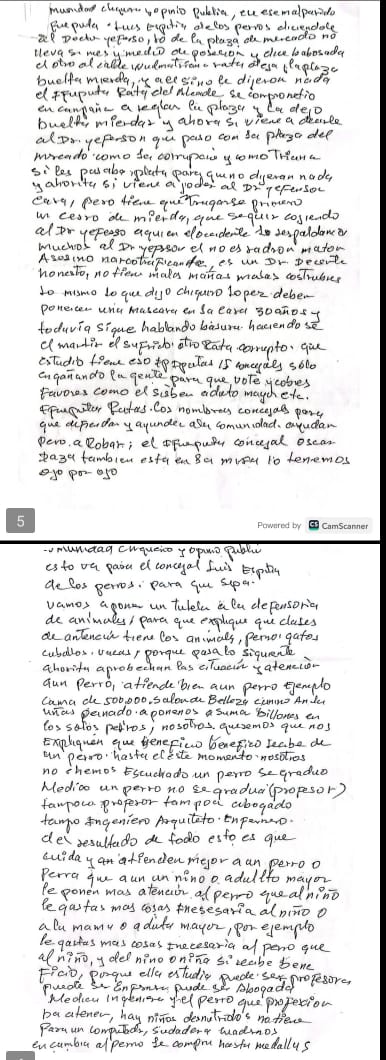 mundad chiquero y opinio Publia, en ese mal parido
al Doctor yeferso, lo de la plaza de mercado no
lleva si mes y medio de posecion y dice babosada
el otro alcalde rata deja la plaza
buelta mierda, y a el si no le dijeron nada
Rata del Alcalde se comprometio
en campaña areglar la plaza y la dejo
buelta mierdas y ahora si viene a decirle
al Dr. yeperson que paso con la plaza del
mercado como la corrupcio y como Triana
si les pasaba plata para que no dijeran nada
y ahorita si viene a joder al Dr yeferson
cara, pero tiene que tragarse primero
un cesto de mierda, que seguir cojiendo
al Dr yeferso aqui en el occidente lo respaldan
muchos al Dr yepsson el no es ladron matón
Asesino narcotraficante, es un Dr Decente
honesto, no tiene malas mañas malas costrubres
Lo mismo lo que dijo chiquero Lopez deben
ponercen una mascara en la cara 30 años y
todavia sigue hablando básura haciendo se
el martir el sufrido otro Rata corrupto. que
estudio tiene eso 15 concejals sólo
engañando la gente para que vote y cobres
Favores como el sisben adulto mayor etc.
Ratas. los nombran concejals para
que defiendan y ayunder ala comunidad. ayudan
Pero. a Robar; el concejal oscar
Daza tambien esta en la mira lo tenemos
ojo por ojo
5
Powered by CS CamScanner
comunidad chiqueico y opino publi
esto va para el concejal Luis Espitia
de los perros. para que sepa.
vamos aponer un tutela a la defensoria
de animales, para que explique que clases
de antencion tiene los animals, perros, gatos
caballos, vacas, porque pasa lo siguente
ahorita aprobechan las cituación y atención
aun perro, atiende bien aun perro Ejemplo
cama de 500,000, Salon de Belleza
uñas peinado. aponenos a suma billones en
los solos perros, nosotros queremos que nos
Expliquen que benefico benefico recibe de
un perro. hasta el este momento. nosotros
no chemos Escuchado un perro se graduo
Medico un perro no se gradua (profesor)
tampoco profesor tampoco abogado
tampo Ingeniero Arquiteto. Enfermero.
del resultado de todo esto es que
cuida y an atienden mejor a an perro o
Perra que aun un nino o adultto mayor
le ponen mas atención al perro que al niño
le gastas mas cosas nesesaria al niño o
a la mama o aduta mayor, por ejemplo
le gastas mas cosas necesaria al perro que
al niño, y del nino o niña si recibe bene
Ficio, porque ella estudia puede ser profesora
puede se Enfermera puede ser Abogada
Medica Ingeniera y el perro que profexion
ba atener, hay niños desnutrido's no tiene
Para un computador, sudadera cuadernos
en cambia al perro le compra hasta medallas